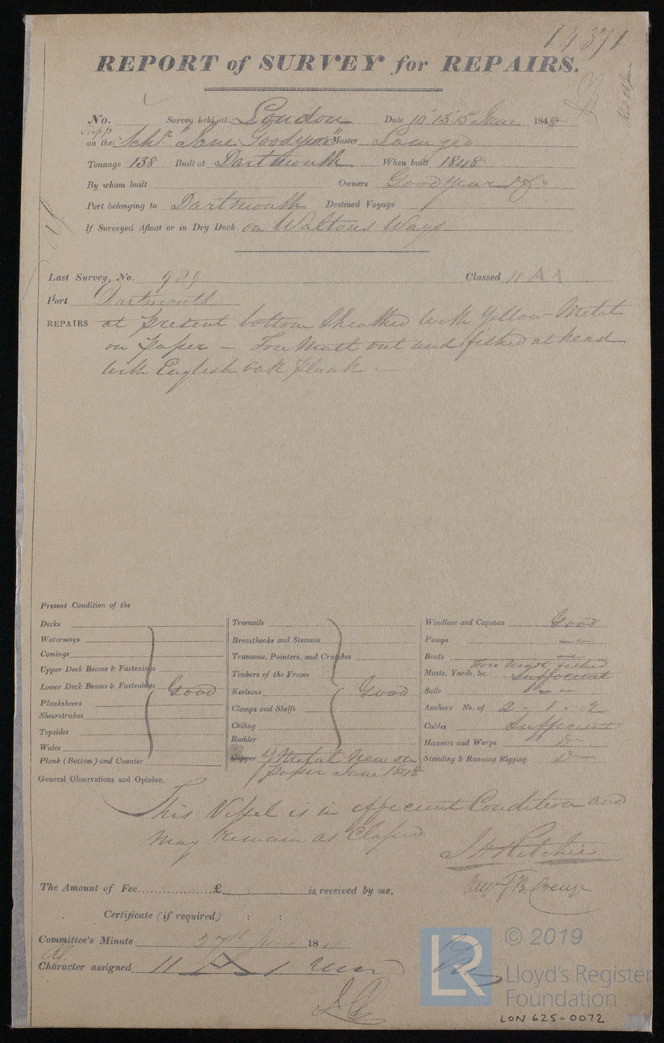 14371
REPORT of SURVEY for REPAIRS.
No. Survey held at London Date 10 13 15th June 184
on the Schr "Jane Goodyear" Master
Tonnage 138 Built at Dartmouth When built 1848
By whom built Owners Goodyear & Co
Port belonging to Dartmouth Destined Voyage
If Surveyed Afloat or in Dry Dock on Waltons Ways
Last Survey, No. 929 Classed 11 A 1
Port Dartmouth
REPAIRS at present bottom Sheathed with Yellow Metal
on paper – Fore Mast out and fished at head
with English oak plank –
Present Condition of the
Decks
Waterways
Comings
Upper Deck Beams & Fastenings
Lower Deck Beams & Fastenings Good
Plansheers
Sheerstrakes
Topsides
Wales
Plank (Bottom) and Counter
Treenails
Breasthooks and Stemson
Transoms, Pointers, and Crutches
Timbers of the Frame
Keelsons Good
Clamps and Shelfs
Ceiling
Rudder
Y Metal New on
paper June 1848
Windlass and Capstan Good
Pumps
Boats
Fore Mast fished
Masts, Yards, &c. Sufficient
Sails
Anchors No. of 2 - 1 - 2
Cables Sufficient
Hawsers and Warps Do
Standing & Running Rigging Do
General Observations and Opinion,
This Vessel is in efficient Condition and
may remain as Classed
J H Ritchie
The Amount of Fee £ : : is received by me.
Certificate (if required) : :
Committee's Minute 27th June 18
Character assigned 11 A 1
LR
© 2019
Lloyd's Register
Foundation
LON 625-0072